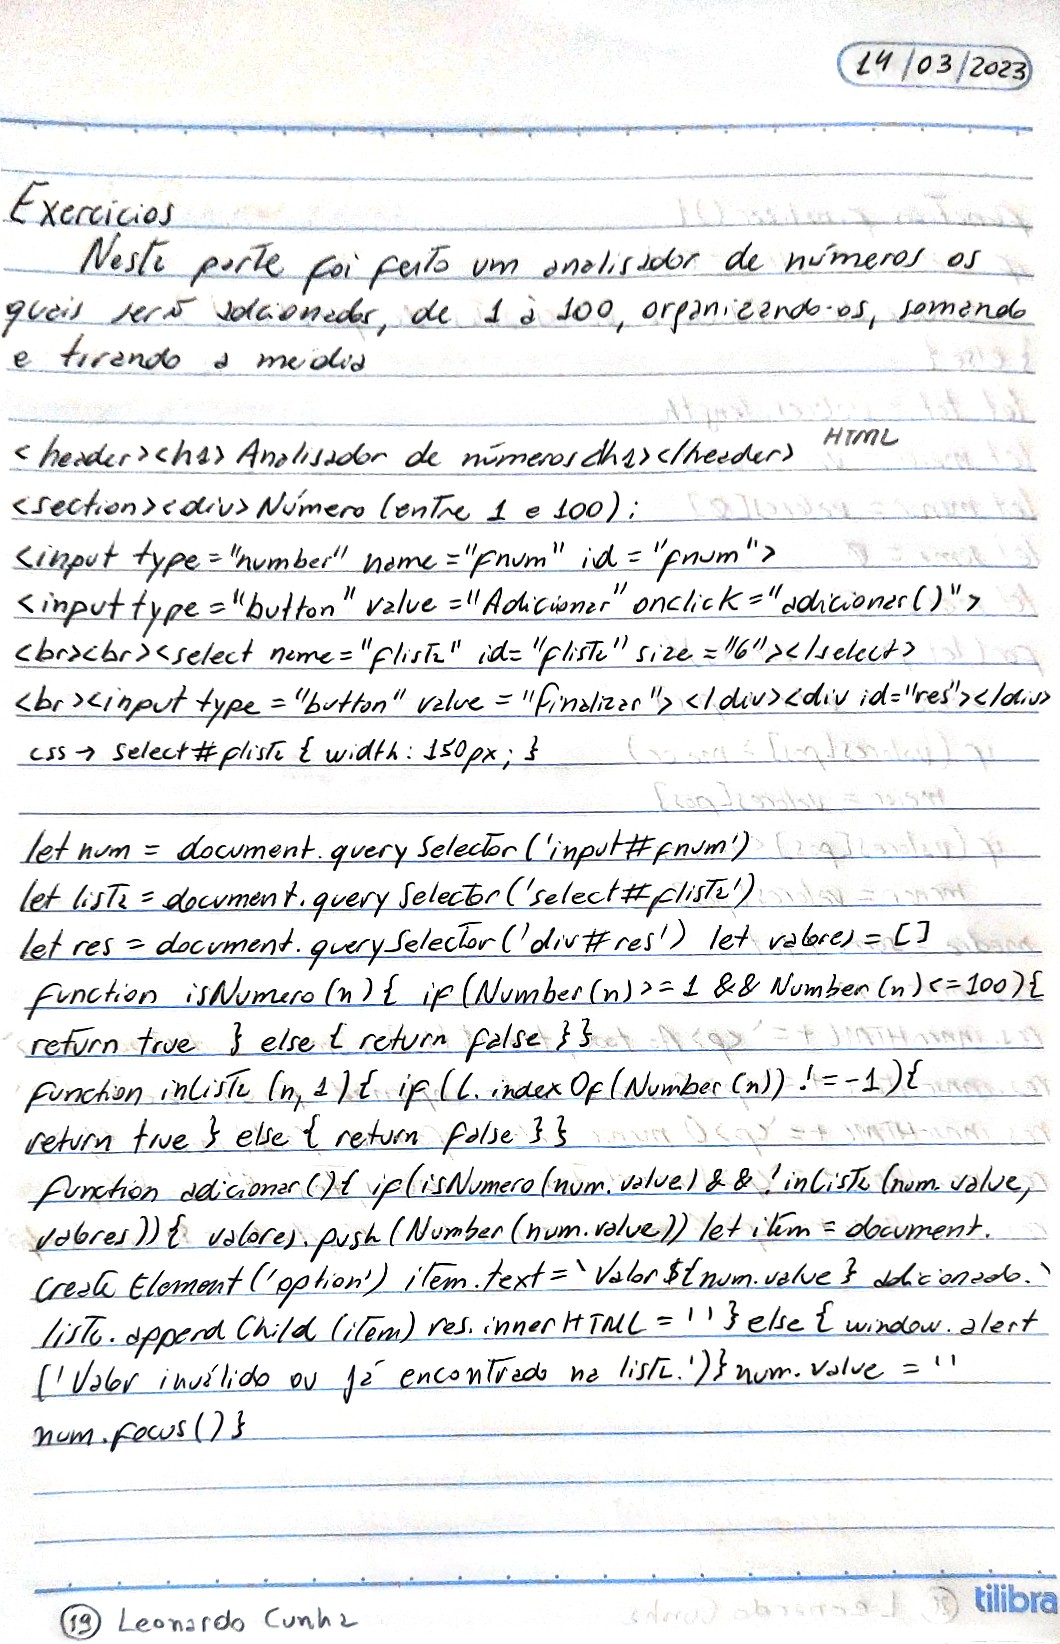 14/03/2023
Exercicios
Nesta parte foi feito um analisador de números os
quais serão adcionados, de 1 à 100, organizando-os, somando
e tirando a media
HTML
<header><h1> Analisador de números</h1></header>
<section><div> Número (entre 1 e 100);
<input type="number" name="fnum" id="fnum">
<input type="button" value="Adicionar" onclick="adicionar()">
<br><br><select name="flista" id="flista" size="6"></select>
<br><input type="button" value="finalizar"></div><div id="res"></div>
css → select#flista { width: 150px; }
let num = document.querySelector('input#fnum')
let lista = document.querySelector('select#flista')
let res = document.querySelector('div#res') let valores = []
function isNumero(n){ if(Number(n)>=1 && Number(n)<=100){
return true } else { return false }}
function inLista (n, 1){ if (L.indexOf(Number(n)) !=-1){
return true } else { return false }}
function adicionar(){ if(isNumero(num.value) && !inLista(num.value,
valores)){ valores.push(Number(num.value)) let item = document.
createElement('option') item.text=`Valor ${num.value} adicionado.`
lista.appendChild(item) res.innerHTML = ''} else { window.alert
('Valor inválido ou já encontrado na lista.')} num.value = ''
num.focus()}
tilibra
19 Leonardo Cunha